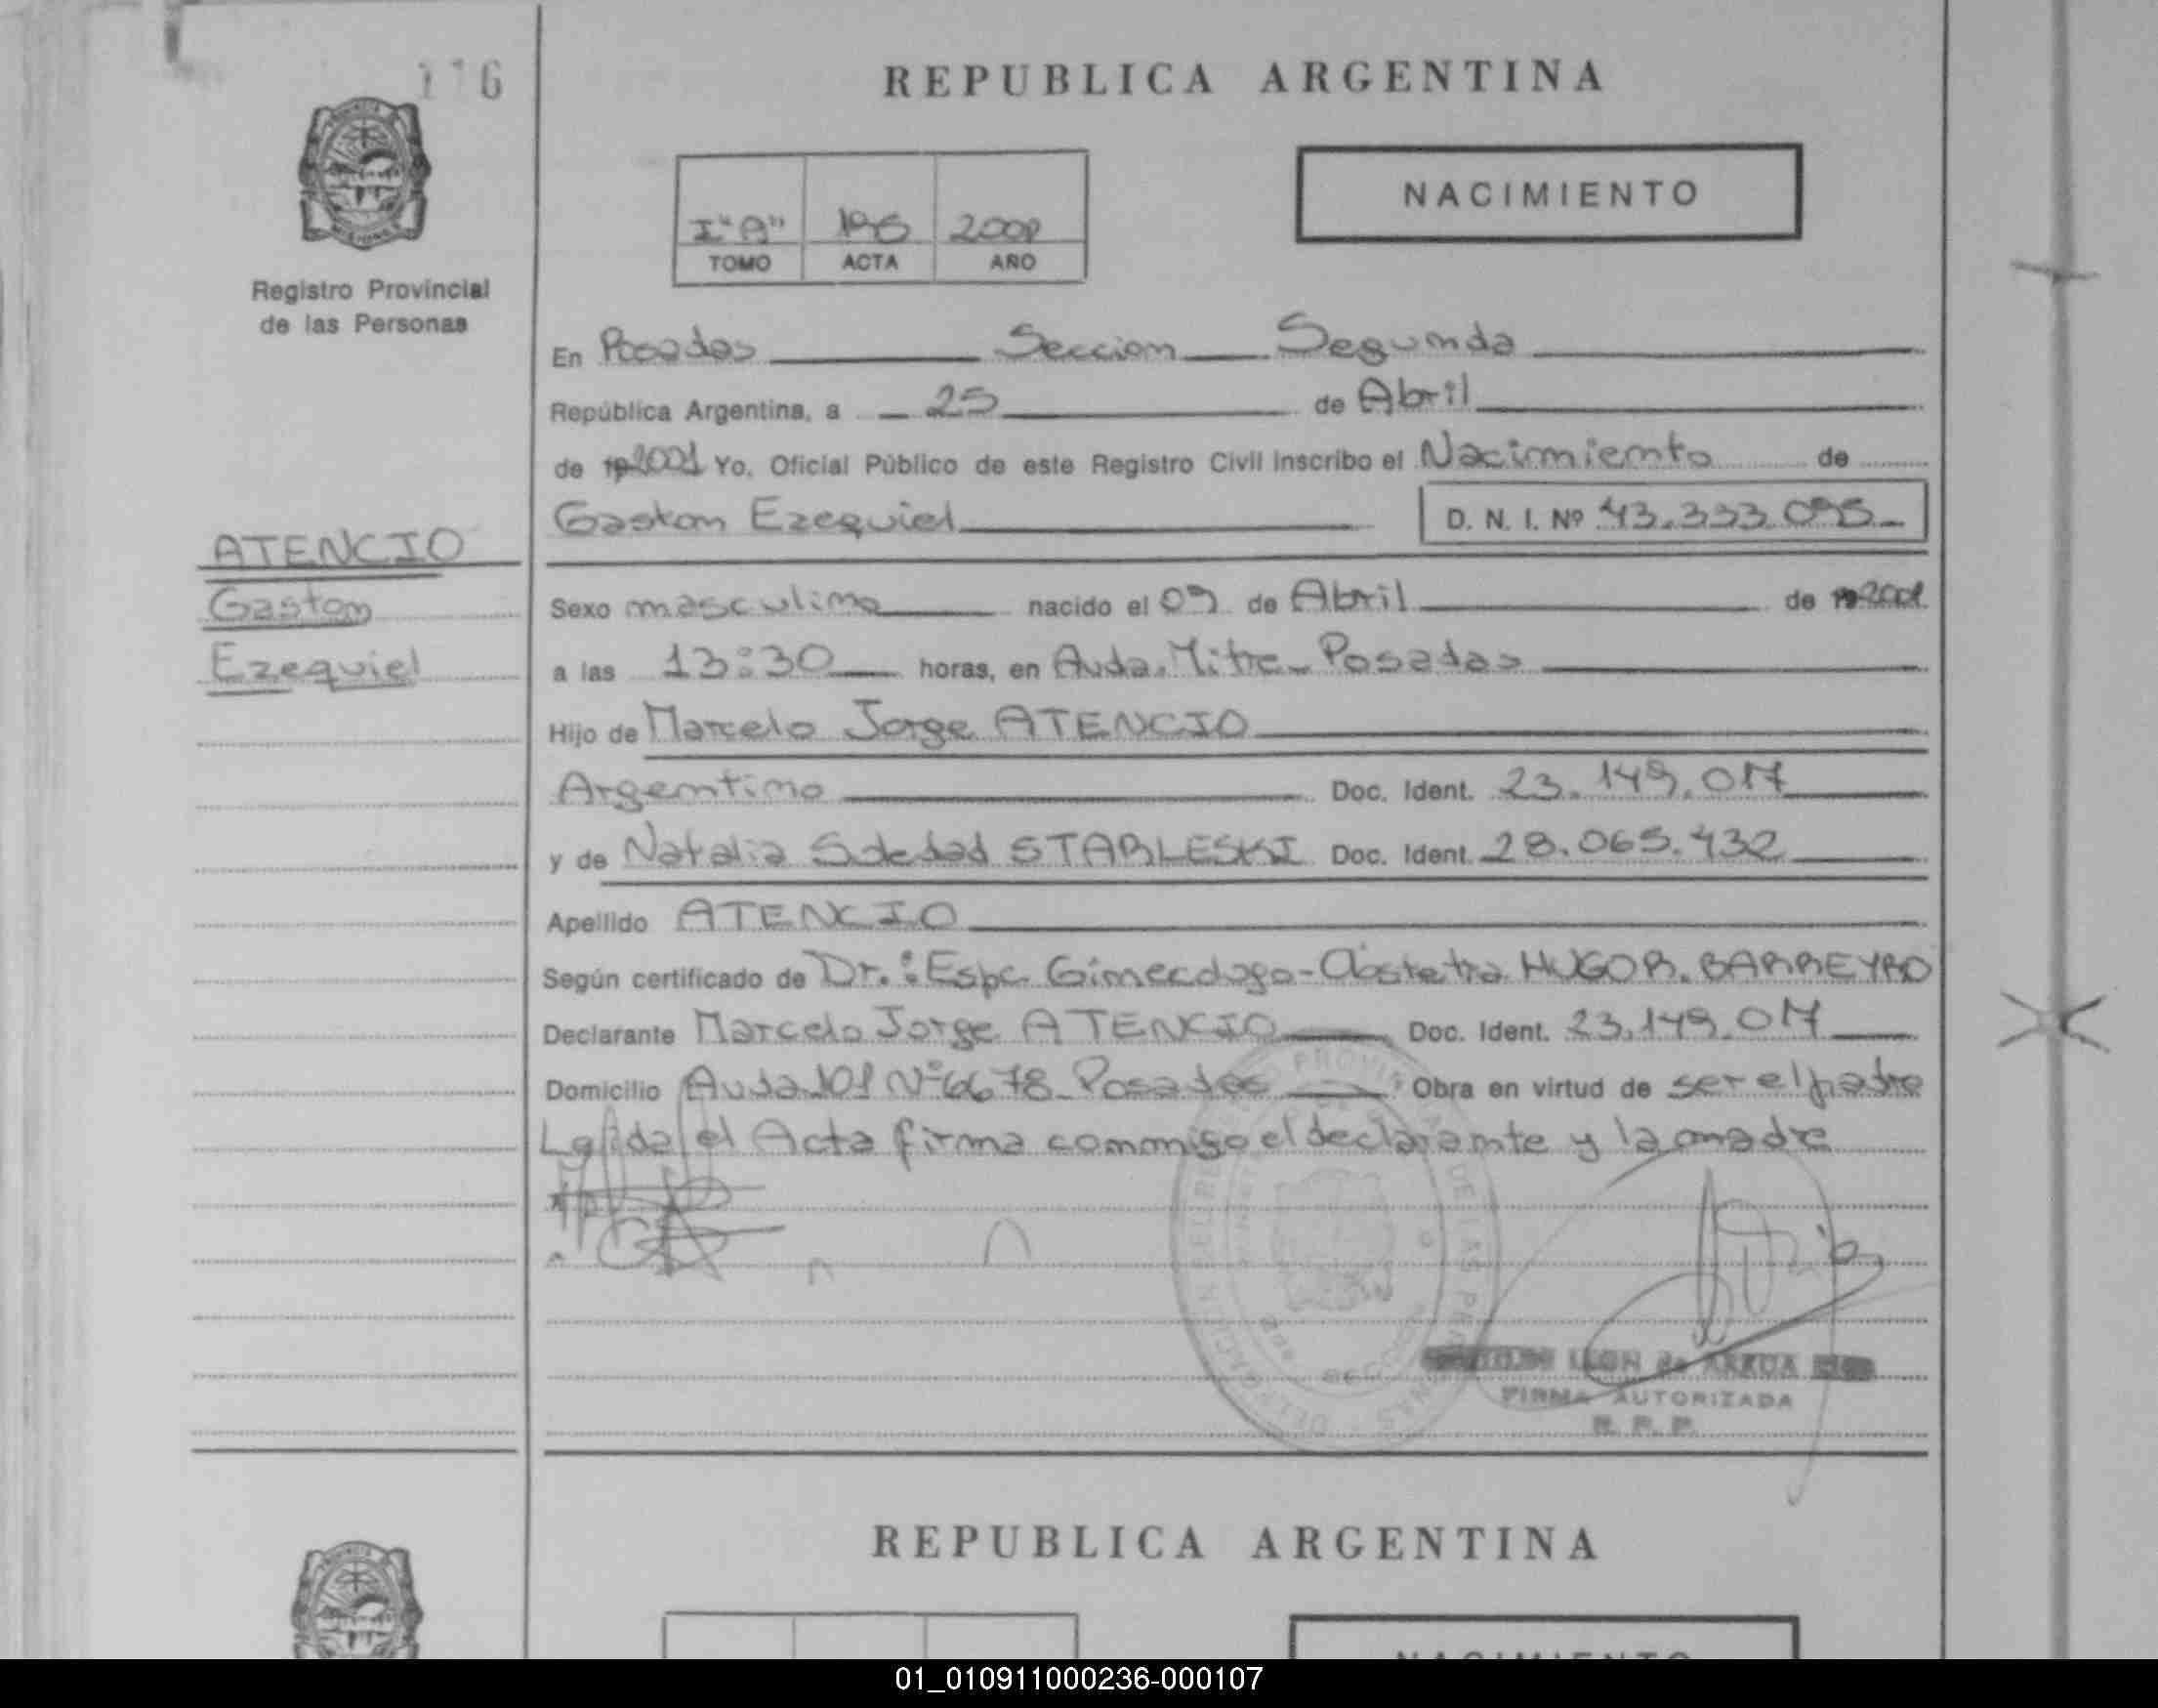 116
REPUBLICA ARGENTINA
NACIMIENTO
I "A" 196 2001
TOMO ACTA AÑO
Registro Provincial
de las Personas
En Posadas Seccion Segunda
República Argentina, a 25 de Abril
de 192001 Yo, Oficial Público de este Registro Civil inscribo el Nacimiento de
Gaston Ezequiel D. N. I. Nº 43.333.095
ATENCIO
Gaston
Ezequiel
Sexo masculino nacido el 09 de Abril de 192001
a las 13:30 horas, en Avda. Mitre - Posadas
Hijo de Marcelo Jorge ATENCIO
Argentino Doc. Ident. 23.149.017
y de Natalia Soledad STABLESKI Doc. Ident. 28.065.432
Apellido ATENCIO
Según certificado de Dr.: Espc. Ginecologo-Obstetra HUGO R. BARREYRO
Declarante Marcelo Jorge ATENCIO Doc. Ident. 23.149.017
Domicilio Avda 101 Nº 6678 - Posadas Obra en virtud de ser el padre
Leida el Acta firma conmigo el declarante y la madre
LEON de
FIRMA AUTORIZADA
R. P. P.
REPUBLICA ARGENTINA
NACIMIENTO
01_010911000236-000107